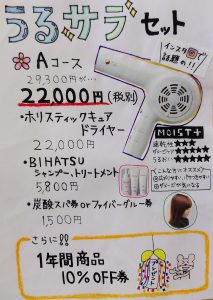 うるサラセット
インスタで
話題の!!
Aコース
29,300円が…
22,000円(税別)
・ホリスティックキュア
ドライヤー
22,000円
MOIST+
速乾性 ★★★
うるおい ★★★★
・BIHATSU
シャンプー、トリートメント
5,800円
こんな方にオススメ♪
・炭酸スパ券orファイバーグルー券
1,500円
さらに!!
1年間商品
10%OFF券
プレゼント